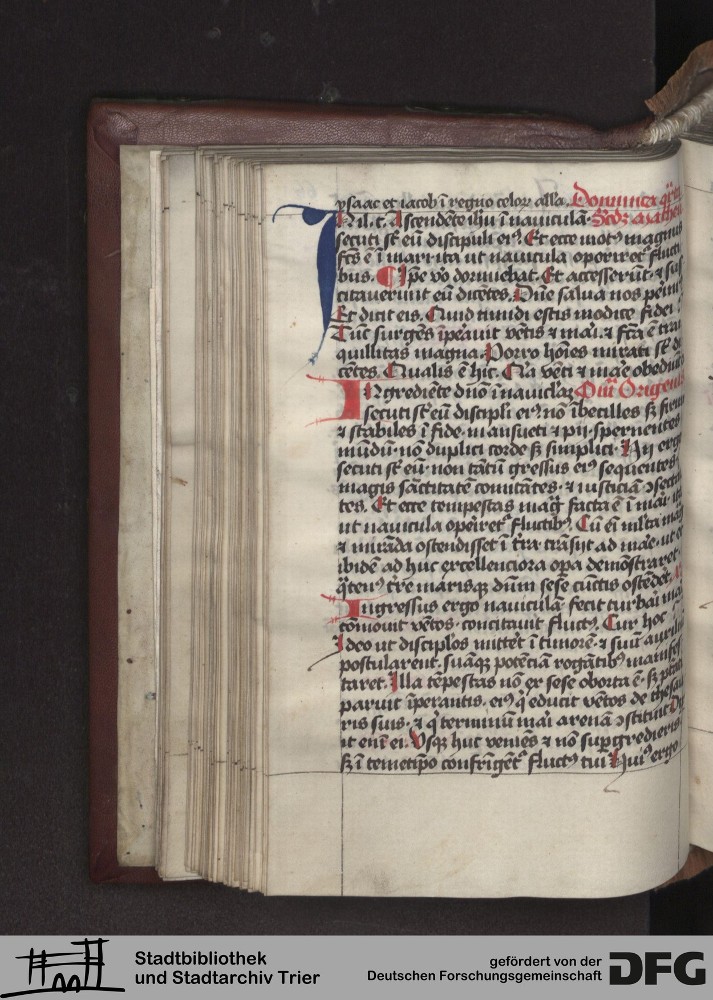 ysaac et iacob ī regno celoꝝ alľa. Dominica q̄rta
In il. t. Ascendēte ihū ī nauiculā Scdꝫ Matheū
secuti sť eū discipuli eiꝰ. Et ecce motꝰ magnus
fc̄s ē ī mari ita ut nauicula operiretᷣ flucti
bus. Ip̄e vo dormiebat. Et accesserūt ⁊ sus
citauerunt eū dicētes. Dn̄e salua nos perim
Et dicit eis. Quid timidi estis modice fidei
Tūc surgēs īpeauit vētis ⁊ mai. ⁊ fc̄a ē tra
quillitas magna. Porro hoīes mirati sť di
cētes. Qualis ē hic. Qia vēti ⁊ mae obediūt
Ingrediēte dn̄o ī nauiclaꝫ Om̄ Origenis
secuti sť eū discipli eiꝰ nō ībecilles sꝫ firmi
⁊ stabiles ī fide. mansueti ⁊ pii. spernentes
mūdū. nō duplici corde sꝫ simplici. Hij ergo
secuti sť eū. non tātū gressus eiꝰ sequentes
magis sāctitatē comitātes. ⁊ iusticiā ɔsecta
tes. Et ecce tempestas maḡ facta ē ī mai. ita
ut nauicula operetᷣ fluctibꝰ. Cū eī mlta mag
⁊ mirāda ostendisset ī tr̄a. trāsijt ad mae. ut et
ibidē ad huc excellenciora opa demōstraret.
q̄tenꝰ tr̄e marisqꝫ dn̄m sese cūctis ostēdet.
Ingressus ergo nauiculā. fecit turbai mae
cōmouit vētos. concitauit fluctꝰ. Cur hoc
Ideo ut disciplos mittet ī timorē. ⁊ suū auxiliū
postularent. suāqꝫ potēciā rogātibꝰ manifes
taret. Illa tēpestas nō ex sese oborta ē. sꝫ p̄tāti
paruit īperantis. eiꝰ q̄ educit vētos de thesau
ris suis. ⁊ q̄ terminū mai arenā ɔstituit. Di
it enī ei. Vsqꝫ huc venies ⁊ nō supgredieris
sꝫ ī temetip̄o confrīgētᷣ fluctꝰ tui. Huiꝰ ergo
Stadtbibliothek
und Stadtarchiv Trier
gefördert von der
Deutschen Forschungsgemeinschaft
DFG